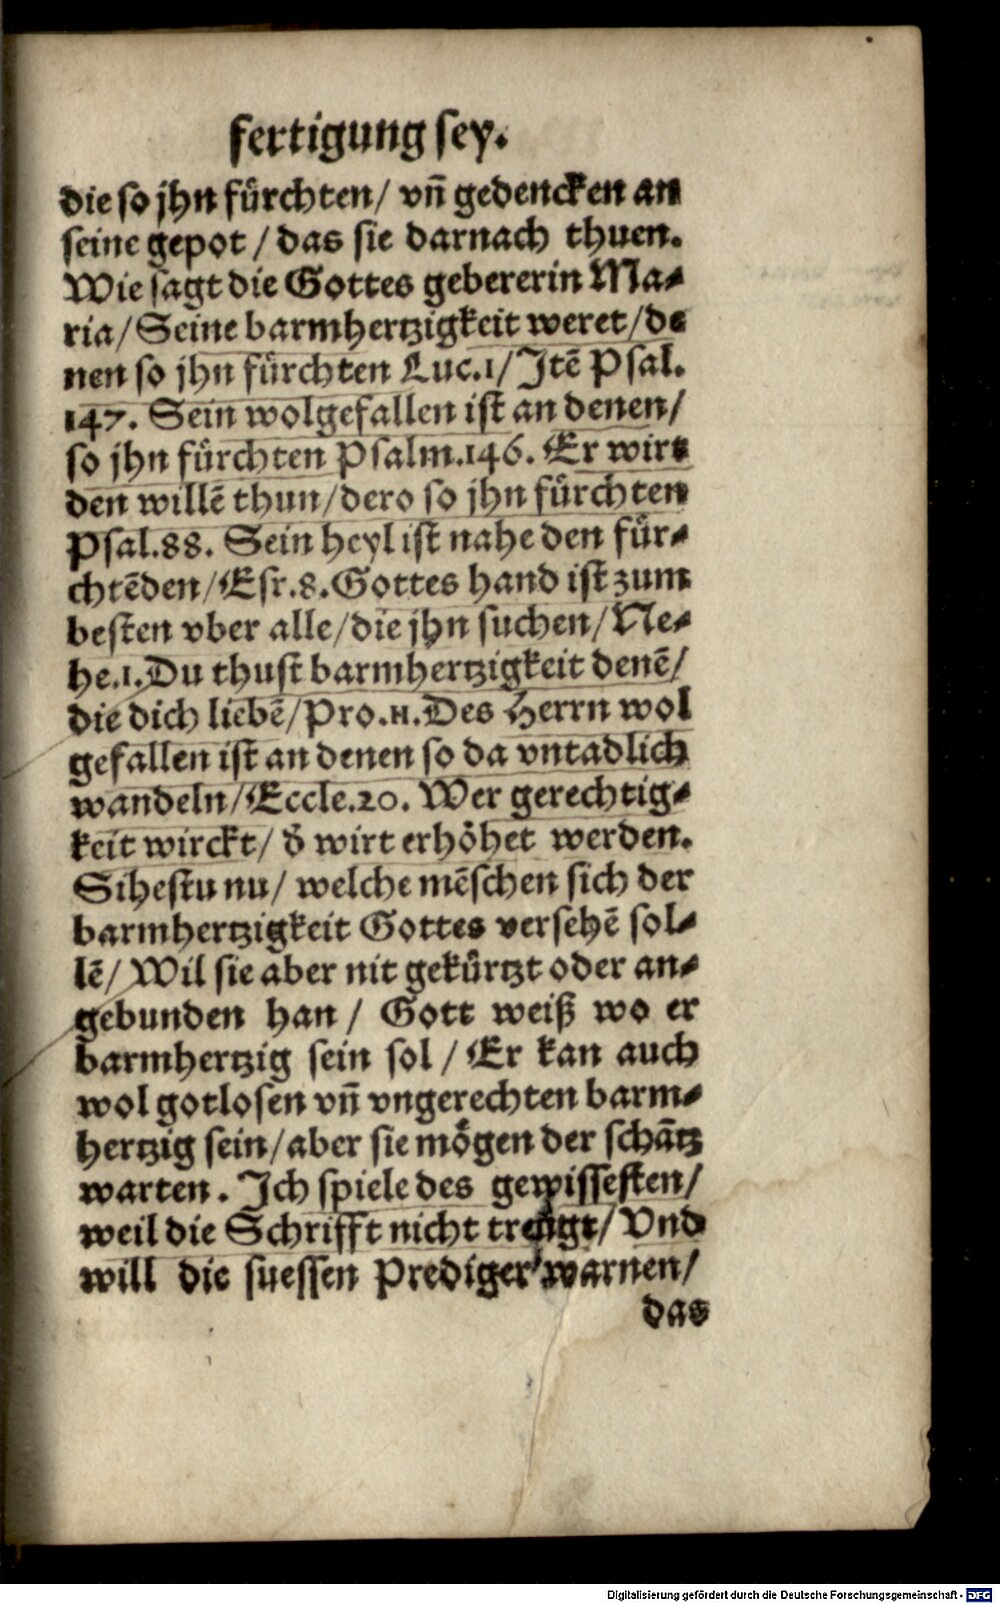 fertigung sey.
die so jhn fürchten/ vñ gedencken an
seine gepot / das sie darnach thuen.
Wie sagt die Gottes gebererin Ma⸗
ria/ Seine barmhertzigkeit weret/ de
nen so jhn fürchten Luc.1/ Jtē Psal.
147. Sein wolgefallen ist an denen/
so jhn fürchten Psalm.146. Er wirt
den willē thun/ dero so jhn fürchten
Psal.88. Sein heyl ist nahe den für⸗
chtēden/ Esr.8. Gottes hand ist zum
besten vber alle/ die jhn suchen/ Ne⸗
he.1. Du thust barmhertzigkeit denē/
die dich liebē/ Pro.11. Des Herrn wol
gefallen ist an denen so da vntadlich
wandeln/ Eccle.20. Wer gerechtig⸗
keit wirckt/ d̄ wirt erhöhet werden.
Sihestu nu/ welche mēschen sich der
barmhertzigkeit Gottes versehē sol⸗
lē/ Wil sie aber nit gekürtzt oder an⸗
gebunden han / Gott weiß wo er
barmhertzig sein sol / Er kan auch
wol gotlosen vñ vngerechten barm⸗
hertzig sein/ aber sie mögen der schātz
warten. Ich spiele des gewissesten/
weil die Schrifft nicht treugt/ Vnd
will die suessen Prediger warnen/
das
Digitalisierung gefördert durch die Deutsche Forschungsgemeinschaft - DFG